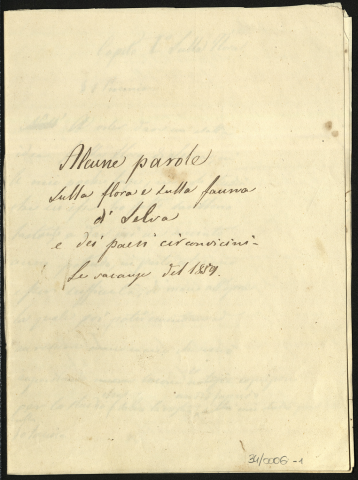 Alcune parole
sulla flora e sulla fauna
di Selva
e dei paesi circonvicini -
Le vacanze del 1859.
34/0006-1